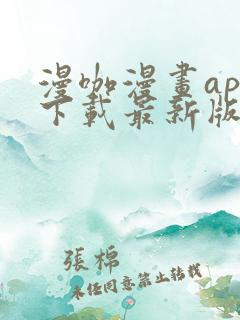 漫咖漫畫ap
下載最新版
張棉
未經同意禁止轉載